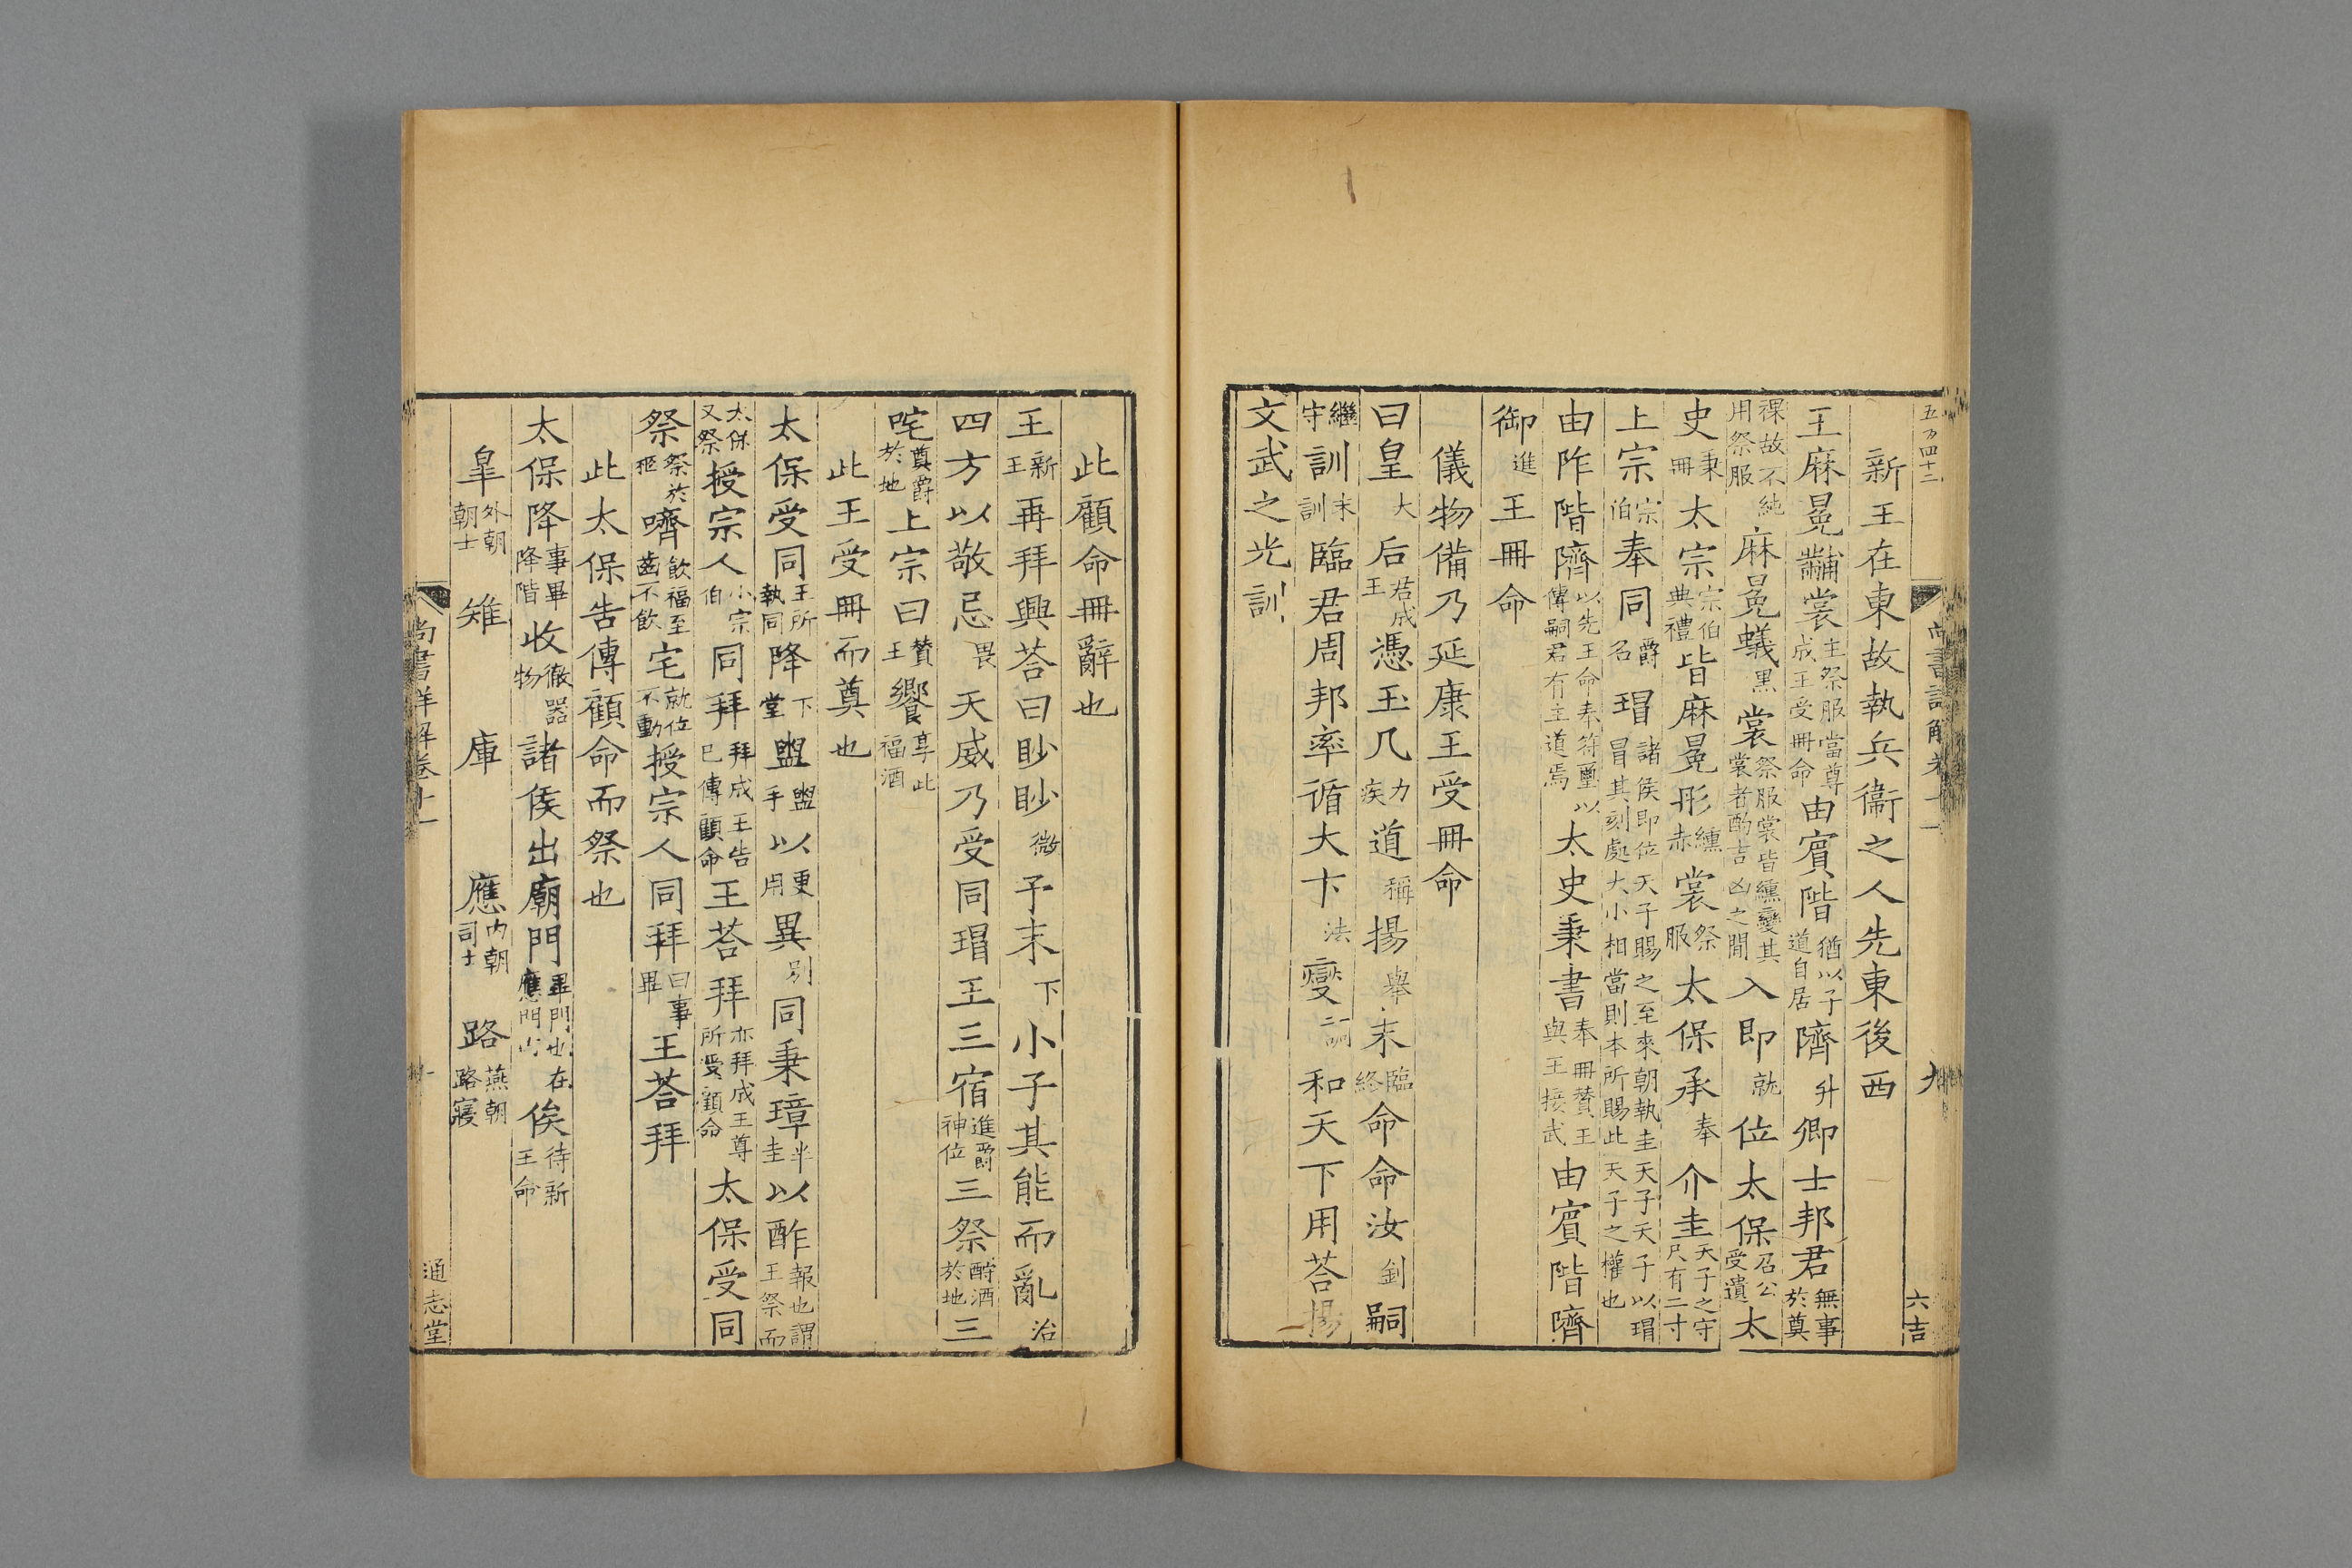 五万四十二 尚書詳解卷十一 九 六吉
新王在東故執兵衞之人先東後西
王麻冕黼裳主祭服當尊成王受冊命由賓階猶以子道自居隮升卿士邦君無事於奠
祼故不純用祭服麻冕蟻黑裳祭服裳皆纁變其裳者酌吉凶之閒入即就位太保召公受遺太
史秉冊太宗宗伯典禮皆麻冕彤纁赤裳祭服太保承奉介圭天子之守尺有二寸
上宗宗伯奉同爵名瑁諸侯即位天子賜之至來朝執圭天子天子以瑁冒其刻處大小相當則本所賜此天子之權也
由阼階隮以先王命奉符璽以傳嗣君有主道焉太史秉書奉冊贊王與王接武由賓階隮
御進王冊命
儀物備乃延康王受冊命
曰皇大后君成王憑玉几力疾道稱揚舉末臨終命命汝釗嗣
繼守訓末訓臨君周邦率循大卞法燮和天下用荅揚
文武之光訓
此顧命冊辭也
王新王再拜興荅曰眇眇微予末下小子其能而亂治
四方以敬忌畏天威乃受同瑁王三宿進爵神位三祭酹酒於地三
咤奠爵於地上宗曰贊王饗享此福酒
此王受冊而奠也
太保受同王所執同降下堂盥盥手以更用異別同秉璋半圭以酢報也謂王祭而
太保又祭授宗人小宗伯同拜拜成王告已傳顧命王荅拜亦拜成王尊所受顧命太保受同
祭祭於柩嚌飲福至齒不飲宅就位不動授宗人同拜曰事畢王荅拜
此太保告傳顧命而祭也
太保降事畢降階收徹器物諸侯出廟門畢門也在應門內俟待新王命
皐外朝朝士 雉 庫 應內朝司士 路燕朝路寢
尚書詳解卷十一 通志堂